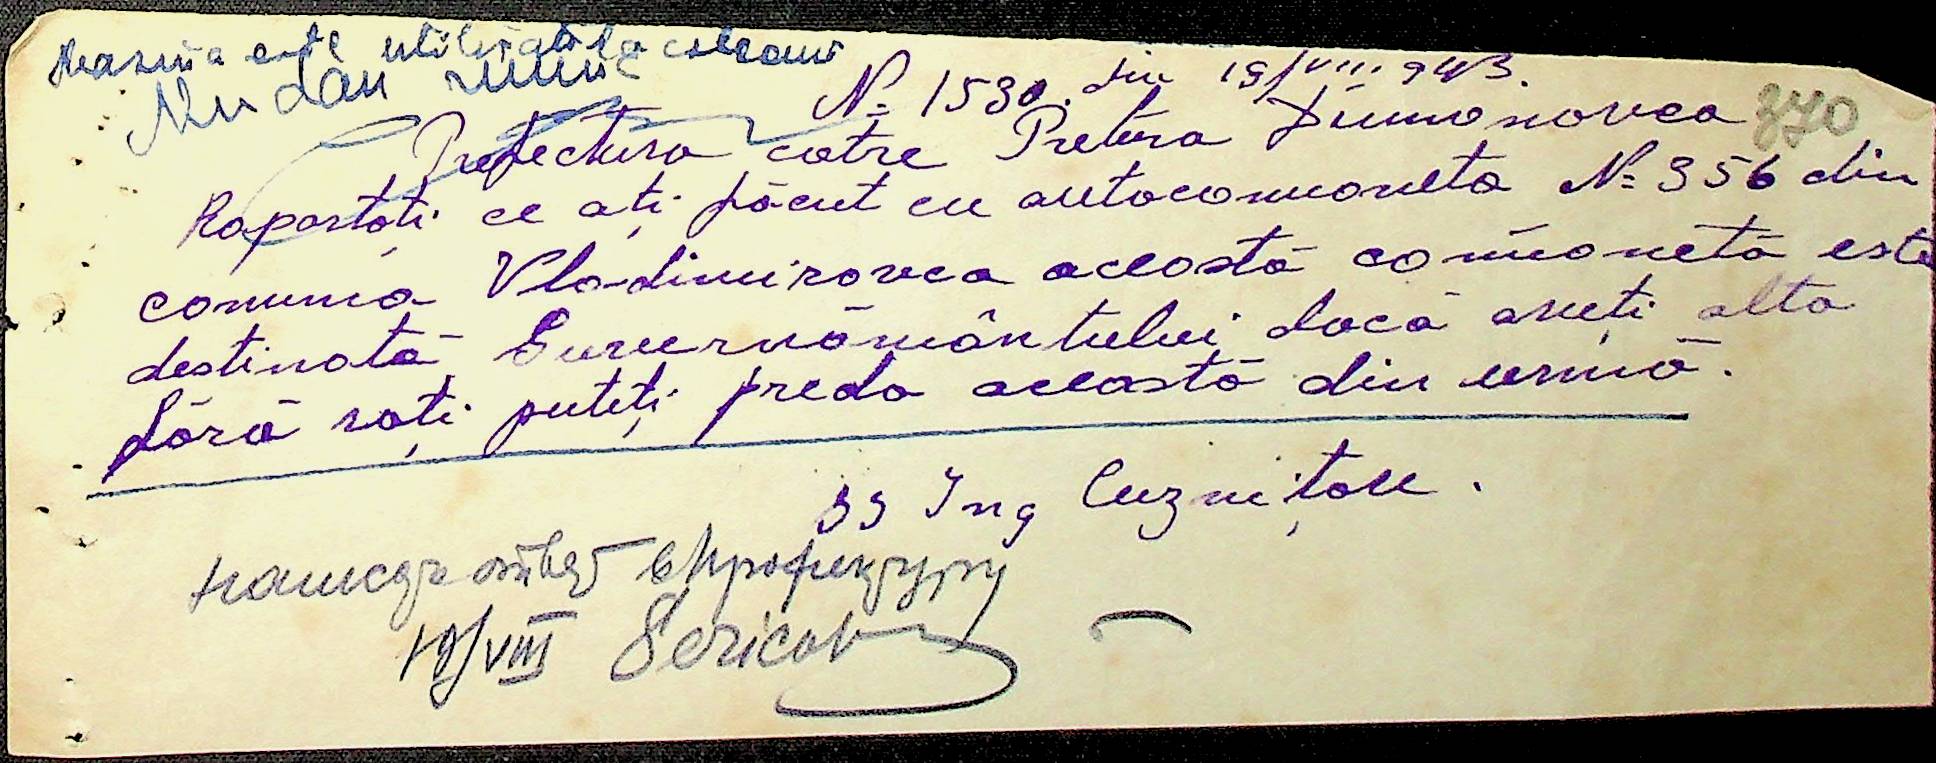 Mașina este utilizată la
Nu dau
№ 1530 din 19/VIII 943.
370
Prefectura catre Pretura Dumonovca
Raportați ce ați făcut cu autocomioneta № 356 din
comuna Vladimirovca această comionetă este
destinată Guvernământului dacă aveți alta
fără roți puteți preda această din urmă.
ss Ing Cuznițov.
ответ в Профектуру
19/VIII Bericov